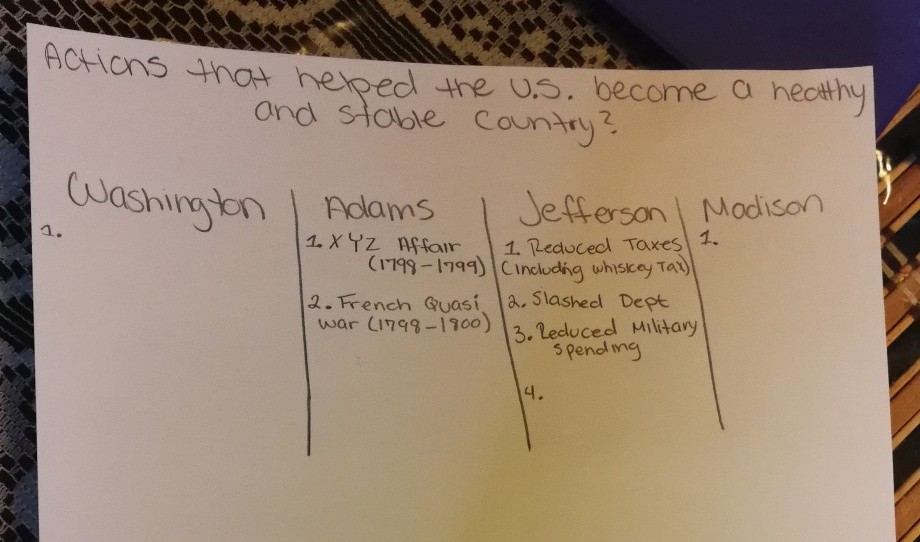 Actions that helped the U.S. become a healthy
and stable country?
Washington
1.
Adams
1. XYZ Affair
(1798-1799)
2. French Quasi
war (1798-1800)
Jefferson
1. Reduced Taxes
(including whiskey Tax)
2. Slashed Dept
3. Reduced Military
spending
4.
Madison
1.